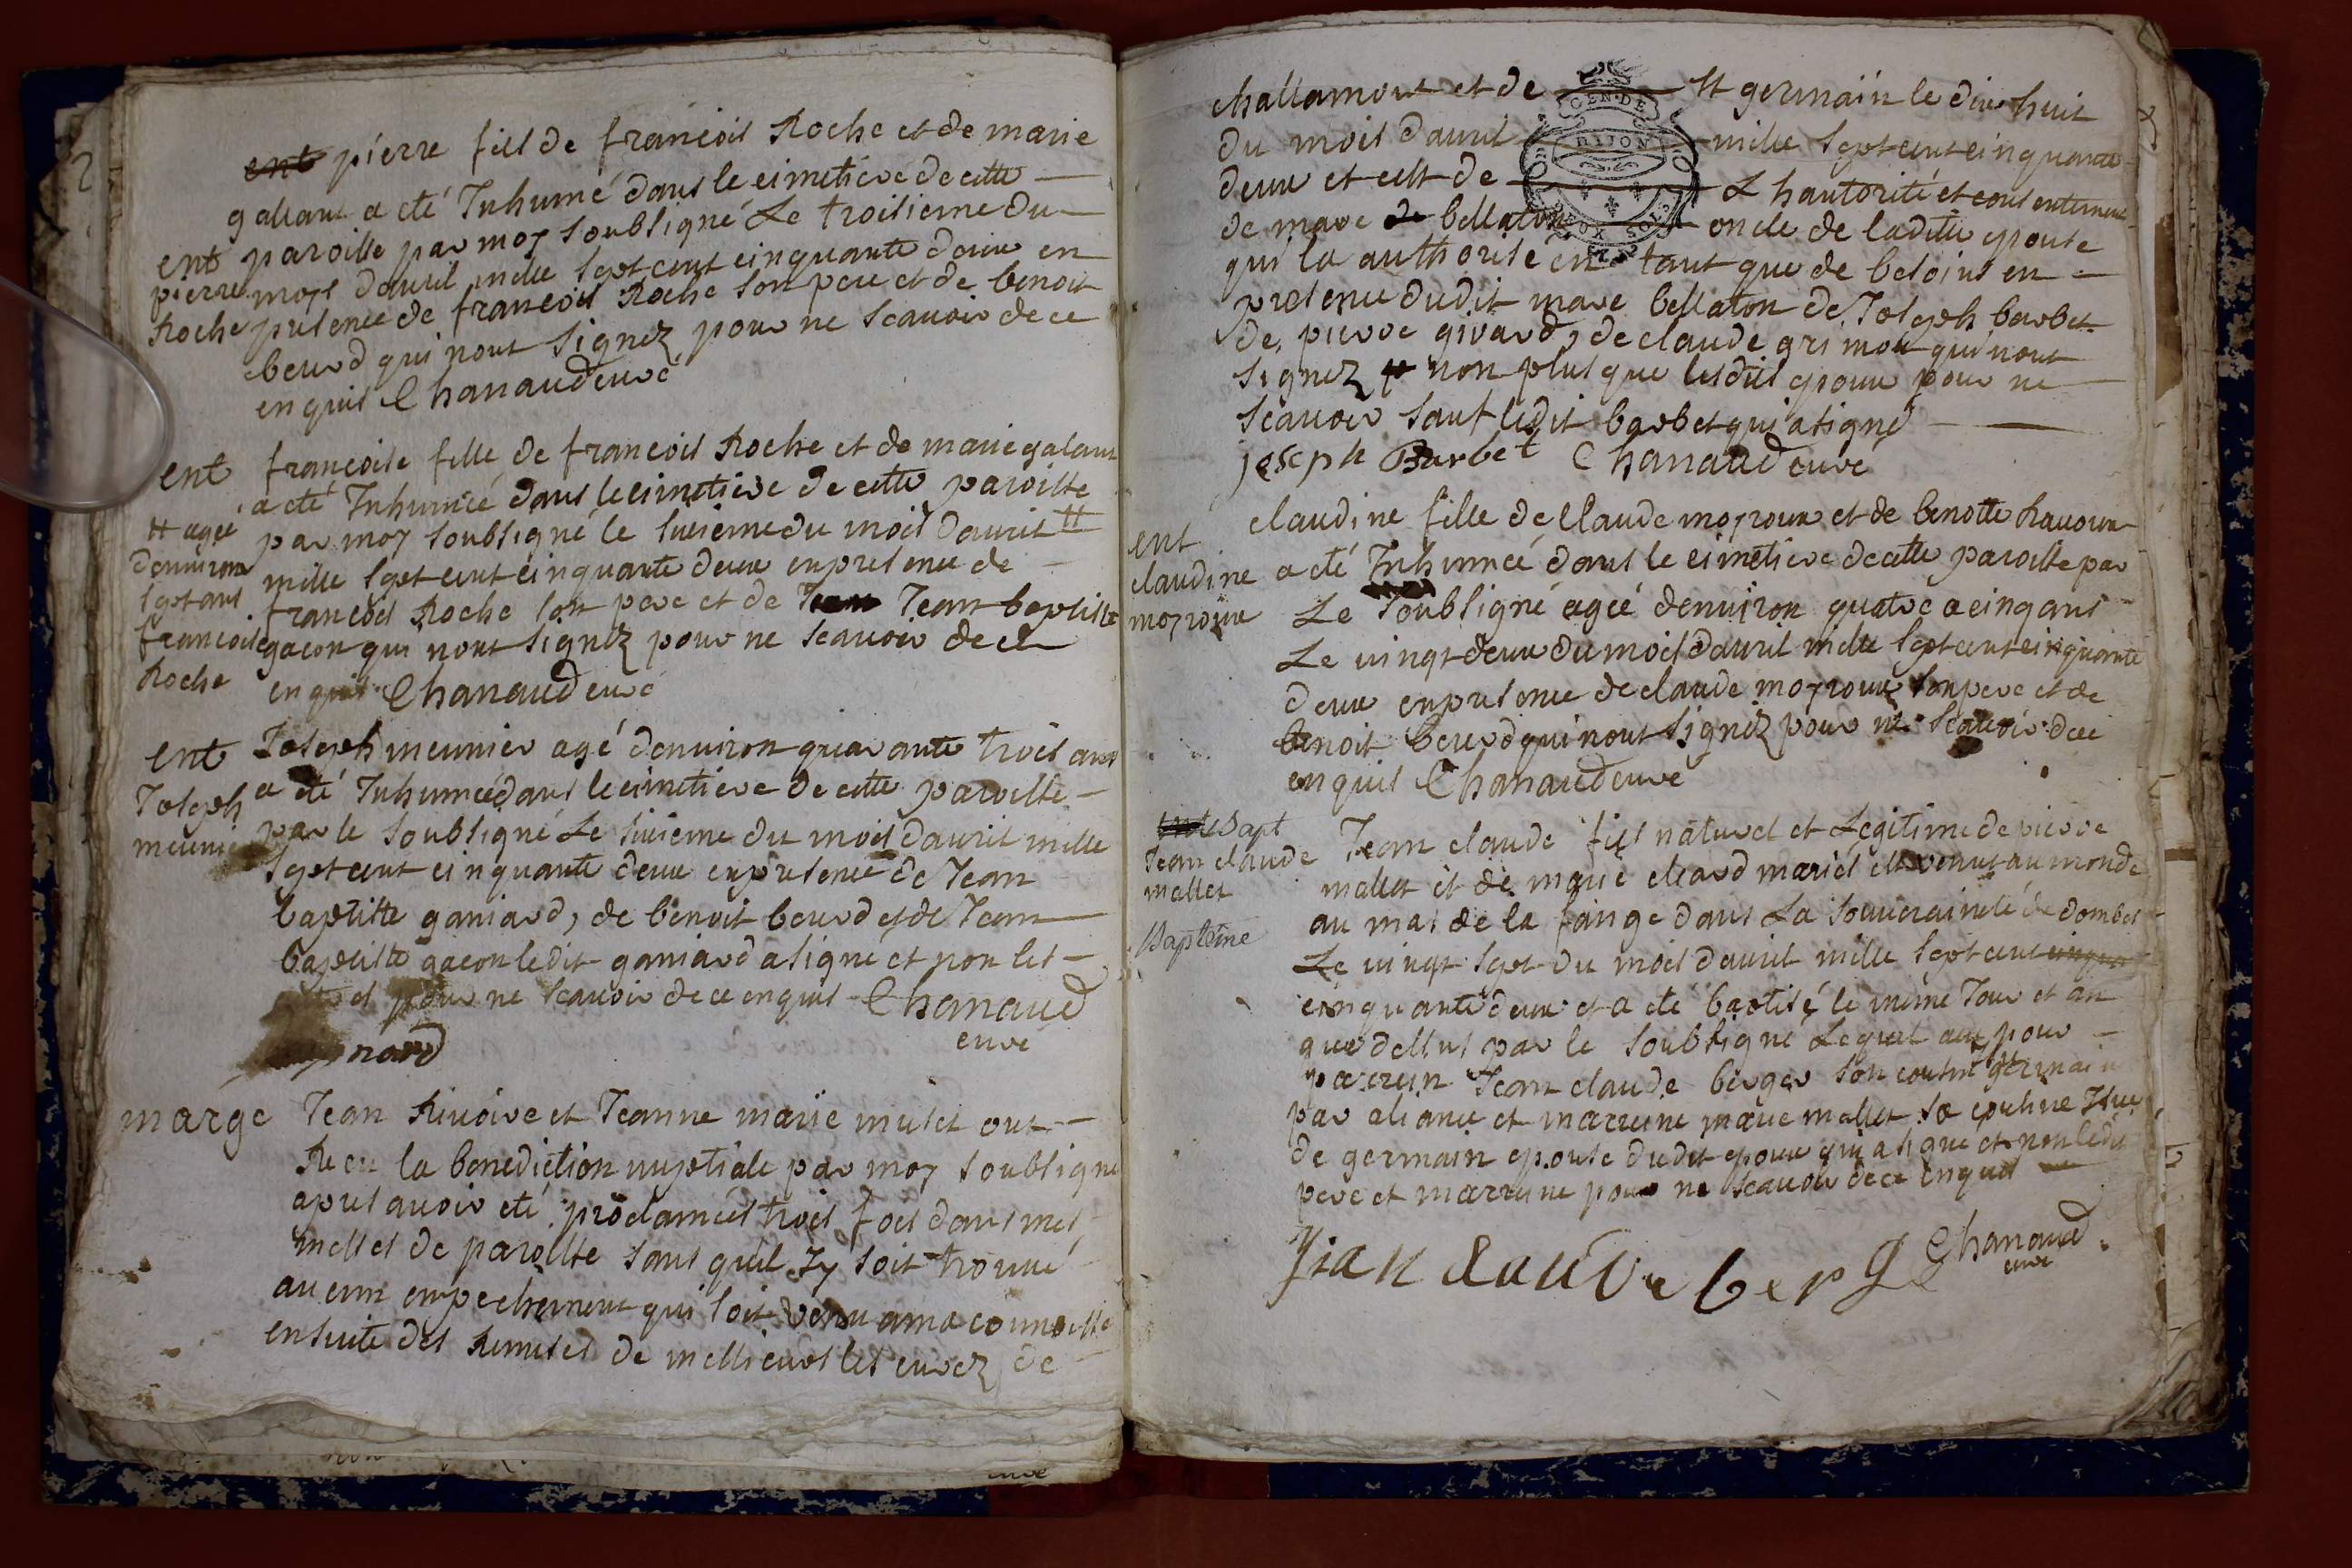 ent pierre fils de francois Roche et de marie
gallant a eté Inhumé dans le cimetiere de cette
ent paroisse par moy soubsigné Le troisieme du
pierre moys davril mille sept cent cinquante deux en
Roche presence de francois Roche son pere et de benoit
beurd qui nont signez pour ne scavoir de ce
enquis Chanaud curé
ent francoise fille de francois Roche et de marie galant
a eté Inhumeé dans le cimetiere de cette paroisse
# ageé par moy soubsigné le sixieme du mois davril #
denviron mille sept cent cinquante deux en presence de
sept ans francois Roche son pere et de Jean Jean baptiste
francoise gacon qui nont signez pour ne scavoir de ce
Roche enquis Chanaud curé
ent Joseph meunier agé denviron quarante trois ans
Joseph a eté Inhumeé dans le cimetiere de cette paroisse
meunier par le soubsigné Le sixieme du mois davril mille
sept cent cinquante deux en presence de Jean
baptiste ganiard, de benoit beurd et de Jean
baptiste gacon ledit ganiard a signé et non les
pour ne scavoir de ce enquis Chanaud
curé
nard
marge Jean Rivoire et Jeanne marie mulet ont
Recu la benediction nuptiale par moy soubsigné
apres avoir eté proclameés trois fois dans mes
messes de paroisse sans quil Jy soit trouvé
aucun empechement qui soit venu a ma connoisse
ensuite des Remises de messieurs les curez de
challamont et de st germain le dix huit
GEN. DE
DIJON
du mois davril mille sept cent cinquante
deux et cest de L hautorité et consentement
de marc de bellaton oncle de ladite epouse
DEUX SOLS
qui la authorisé en tant que de besoins en
presence dudit marc bellaton de Joseph barbet
de pierre givard, de claude grimon qui nont
signez non plus que lesdits epoux pour ne
scavoir sauf ledit barbet qui a signé
joseph Barbet Chanaud curé
claudine fille de claude moyroux et de benotte havoux
ent
claudine a eté Inhumeé dans le cimetiere de cette paroisse par
moyroux Le soubsigné ageé denviron quatre a cinq ans
Le vingt deux du mois davril mille sept cent cinquante
deux en presence de claude moyroux son pere et de
benoit beurd qui nont signéz pour ne scavoir de ce
enquis Chanaud curé
Bapt
Jean claude Jean claude fils naturel et Legitime de pierre
mallet mallet et de marie chard mariés est venut au monde
au mas de la fange dans La souveraineté de dombes
Baptême
Le vingt sept du mois davril mille sept cent cinqua
cinquante deux et a eté baptisé le même Jour et an
que dessus par le soubsigné Lequel a eu pour
parrein Jean claude berger son cousin germain
par aliance et marreine marie mallet sa cousine Issue
de germain epouse dudit epoux qui a signé et non ledit
pere et marreine pour ne scavoir de ce enquis
Jean Claude berge Chanaud
curé